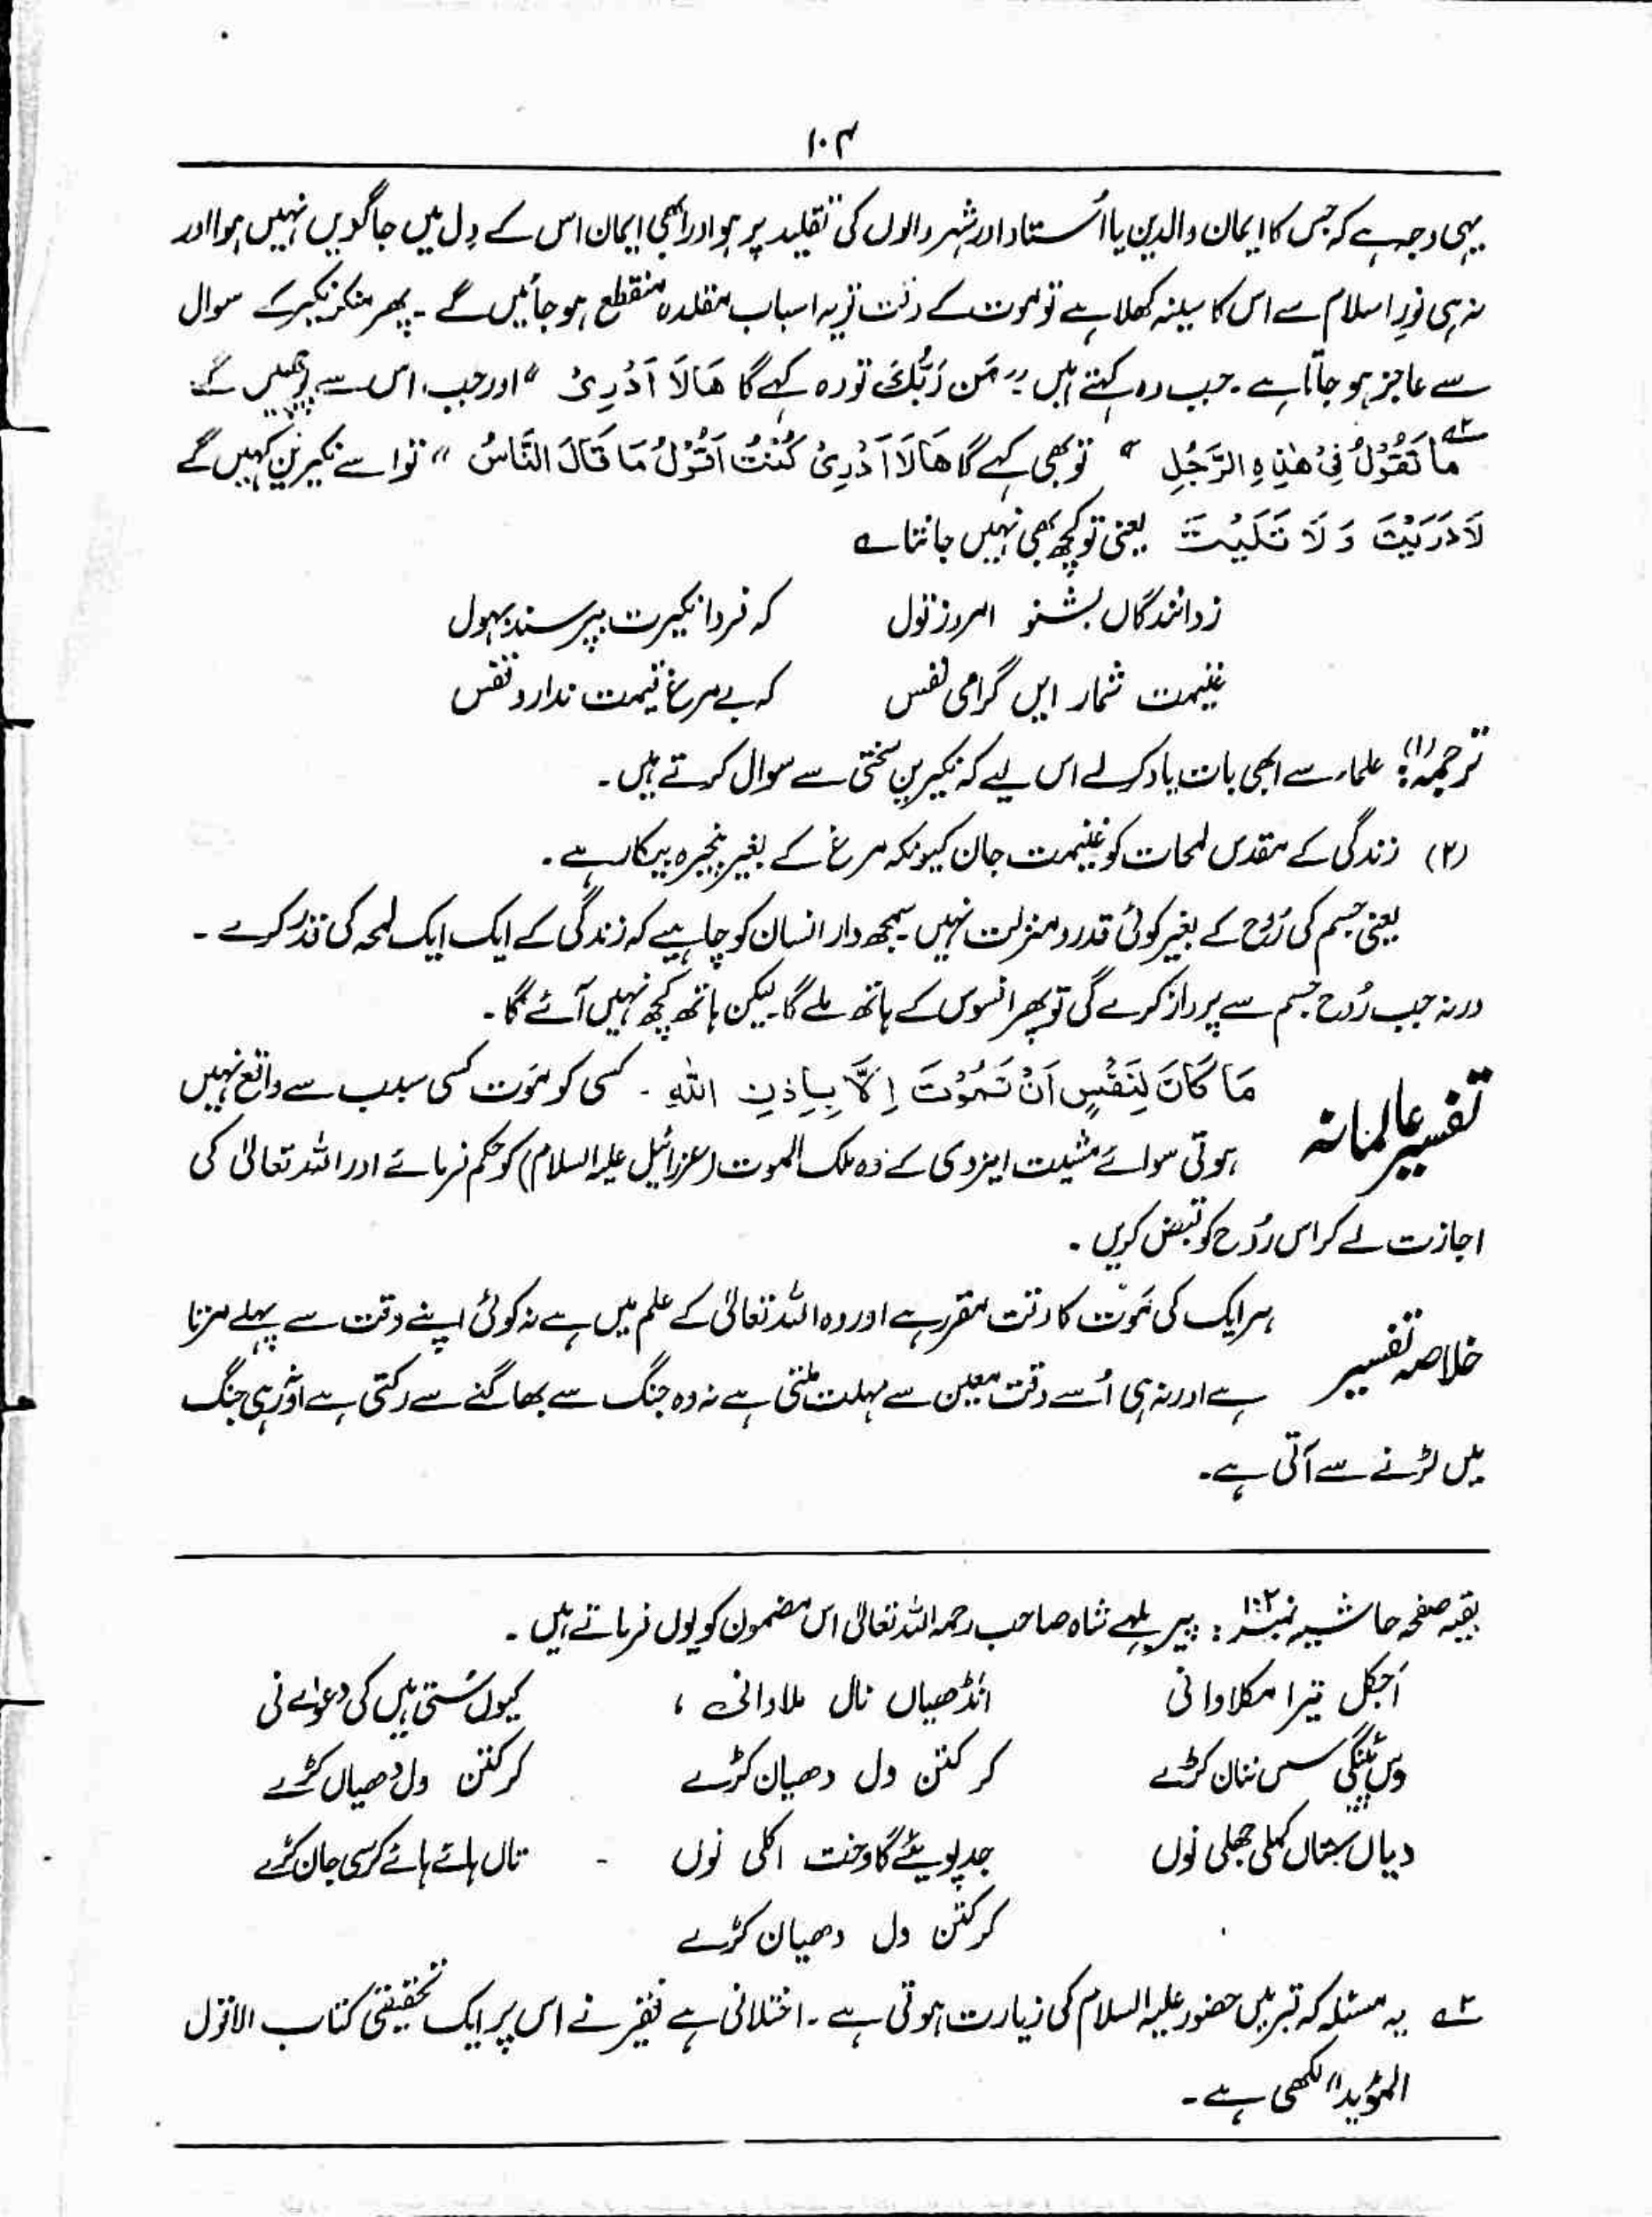 ۱۰۴
یہی وجہ ہے کہ جس کا ایمان والدین یا اُستاد اور شہر والوں کی تقلید پر ہو اور ابھی ایمان اس کے دِل میں جاگزیں نہیں ہوا اور
نہ ہی نورِ اسلام سے اس کا سینہ کھلا ہے تو موت کے وقت تو یہ اسباب مقلدہ منقطع ہو جائیں گے ۔ پھر منکر نکیر کے سوال
سے عاجز ہو جاتا ہے ۔ جب وہ کہتے ہیں ״ مَن رَبُّكَ تو وہ کہے گا هَا لَا اَدْرِیْ " اور جب اس سے پوچھیں گے
مَا تَقُوْلُ فِیْ هٰذِهِ الرَّجُلِ ۲ے " تو بھی کہے گا هَا لَا اَدْرِیْ كُنْتُ اَقُوْلُ مَا قَالَ النَّاسُ " تو اسے نکیرین کہیں گے
لَا دَرَيْتَ وَ لَا تَلَيْتَ یعنی تو کچھ بھی نہیں جانتا ے
ز دانندگاں بشنو امروز قول کہ فردا نکیرت بپرسند بہول
غنیمت شمار ایں گرامی نفس کہ بے مرغ قیمت ندارد قفس
ترجمہ (۱): علماء سے ابھی بات یاد کر لے اس لیے کہ نکیرین سختی سے سوال کرتے ہیں ۔
(۲) زندگی کے مقدس لمحات کو غنیمت جان کیونکہ مرغ کے بغیر پنجرہ بیکار ہے ۔
یعنی جسم کی رُوح کے بغیر کوئی قدر و منزلت نہیں ۔ سمجھ دار انسان کو چاہیے کہ زندگی کے ایک ایک لمحہ کی قدر کرے ۔
ورنہ جب رُوح جسم سے پرواز کرے گی تو پھر افسوس کے ہاتھ ملے گا لیکن ہاتھ کچھ نہیں آئے گا ۔
تفسیر عالمانہ مَا كَانَ لِنَفْسٍ اَنْ تَمُوْتَ اِلَّا بِاِذْنِ اللّٰهِ ۔ کسی کو موت کسی سبب سے واقع نہیں
ہوتی سوائے مشیت ایزدی کے وہ ملک الموت (عزرائیل علیہ السلام) کو حکم فرمائے اور اللہ تعالیٰ کی
اجازت لے کر اس رُوح کو قبض کریں ۔
خلاصہ تفسیر ہر ایک کی موت کا وقت مقرر ہے اور وہ اللہ تعالیٰ کے علم میں ہے نہ کوئی اپنے وقت سے پہلے مرتا
ہے اور نہ ہی اُسے وقت معین سے مہلت ملتی ہے نہ وہ جنگ سے بھاگنے سے رکتی ہے اور نہ ہی جنگ
میں لڑنے سے آتی ہے ۔
بقیہ صفحہ حاشیہ نمبر ۱۰۲ : پیر بلہے شاہ صاحب رحمہ اللہ تعالیٰ اس مضمون کو یوں فرماتے ہیں ۔
اَجکل تیرا مکلاوا نی انڈھیاں نال ملاوا نی ، کیوں سُتی ہیں کی دعوائے نی
سس ننان کڑے کر کتن ول دھیان کڑے کر کتن ول دھیاں کڑے
کملی جھلی نوں جد پوئے گا وخت اکلی نوں - تاں ہائے ہائے کرسی جان کڑے
کر کتن ول دھیان کڑے
۲ے یہ مسئلہ کہ قبر میں حضور علیہ السلام کی زیارت ہوتی ہے ۔ اختلافی ہے فقیر نے اس پر ایک تحقیقی کتاب القول
المؤید" لکھی ہے ۔